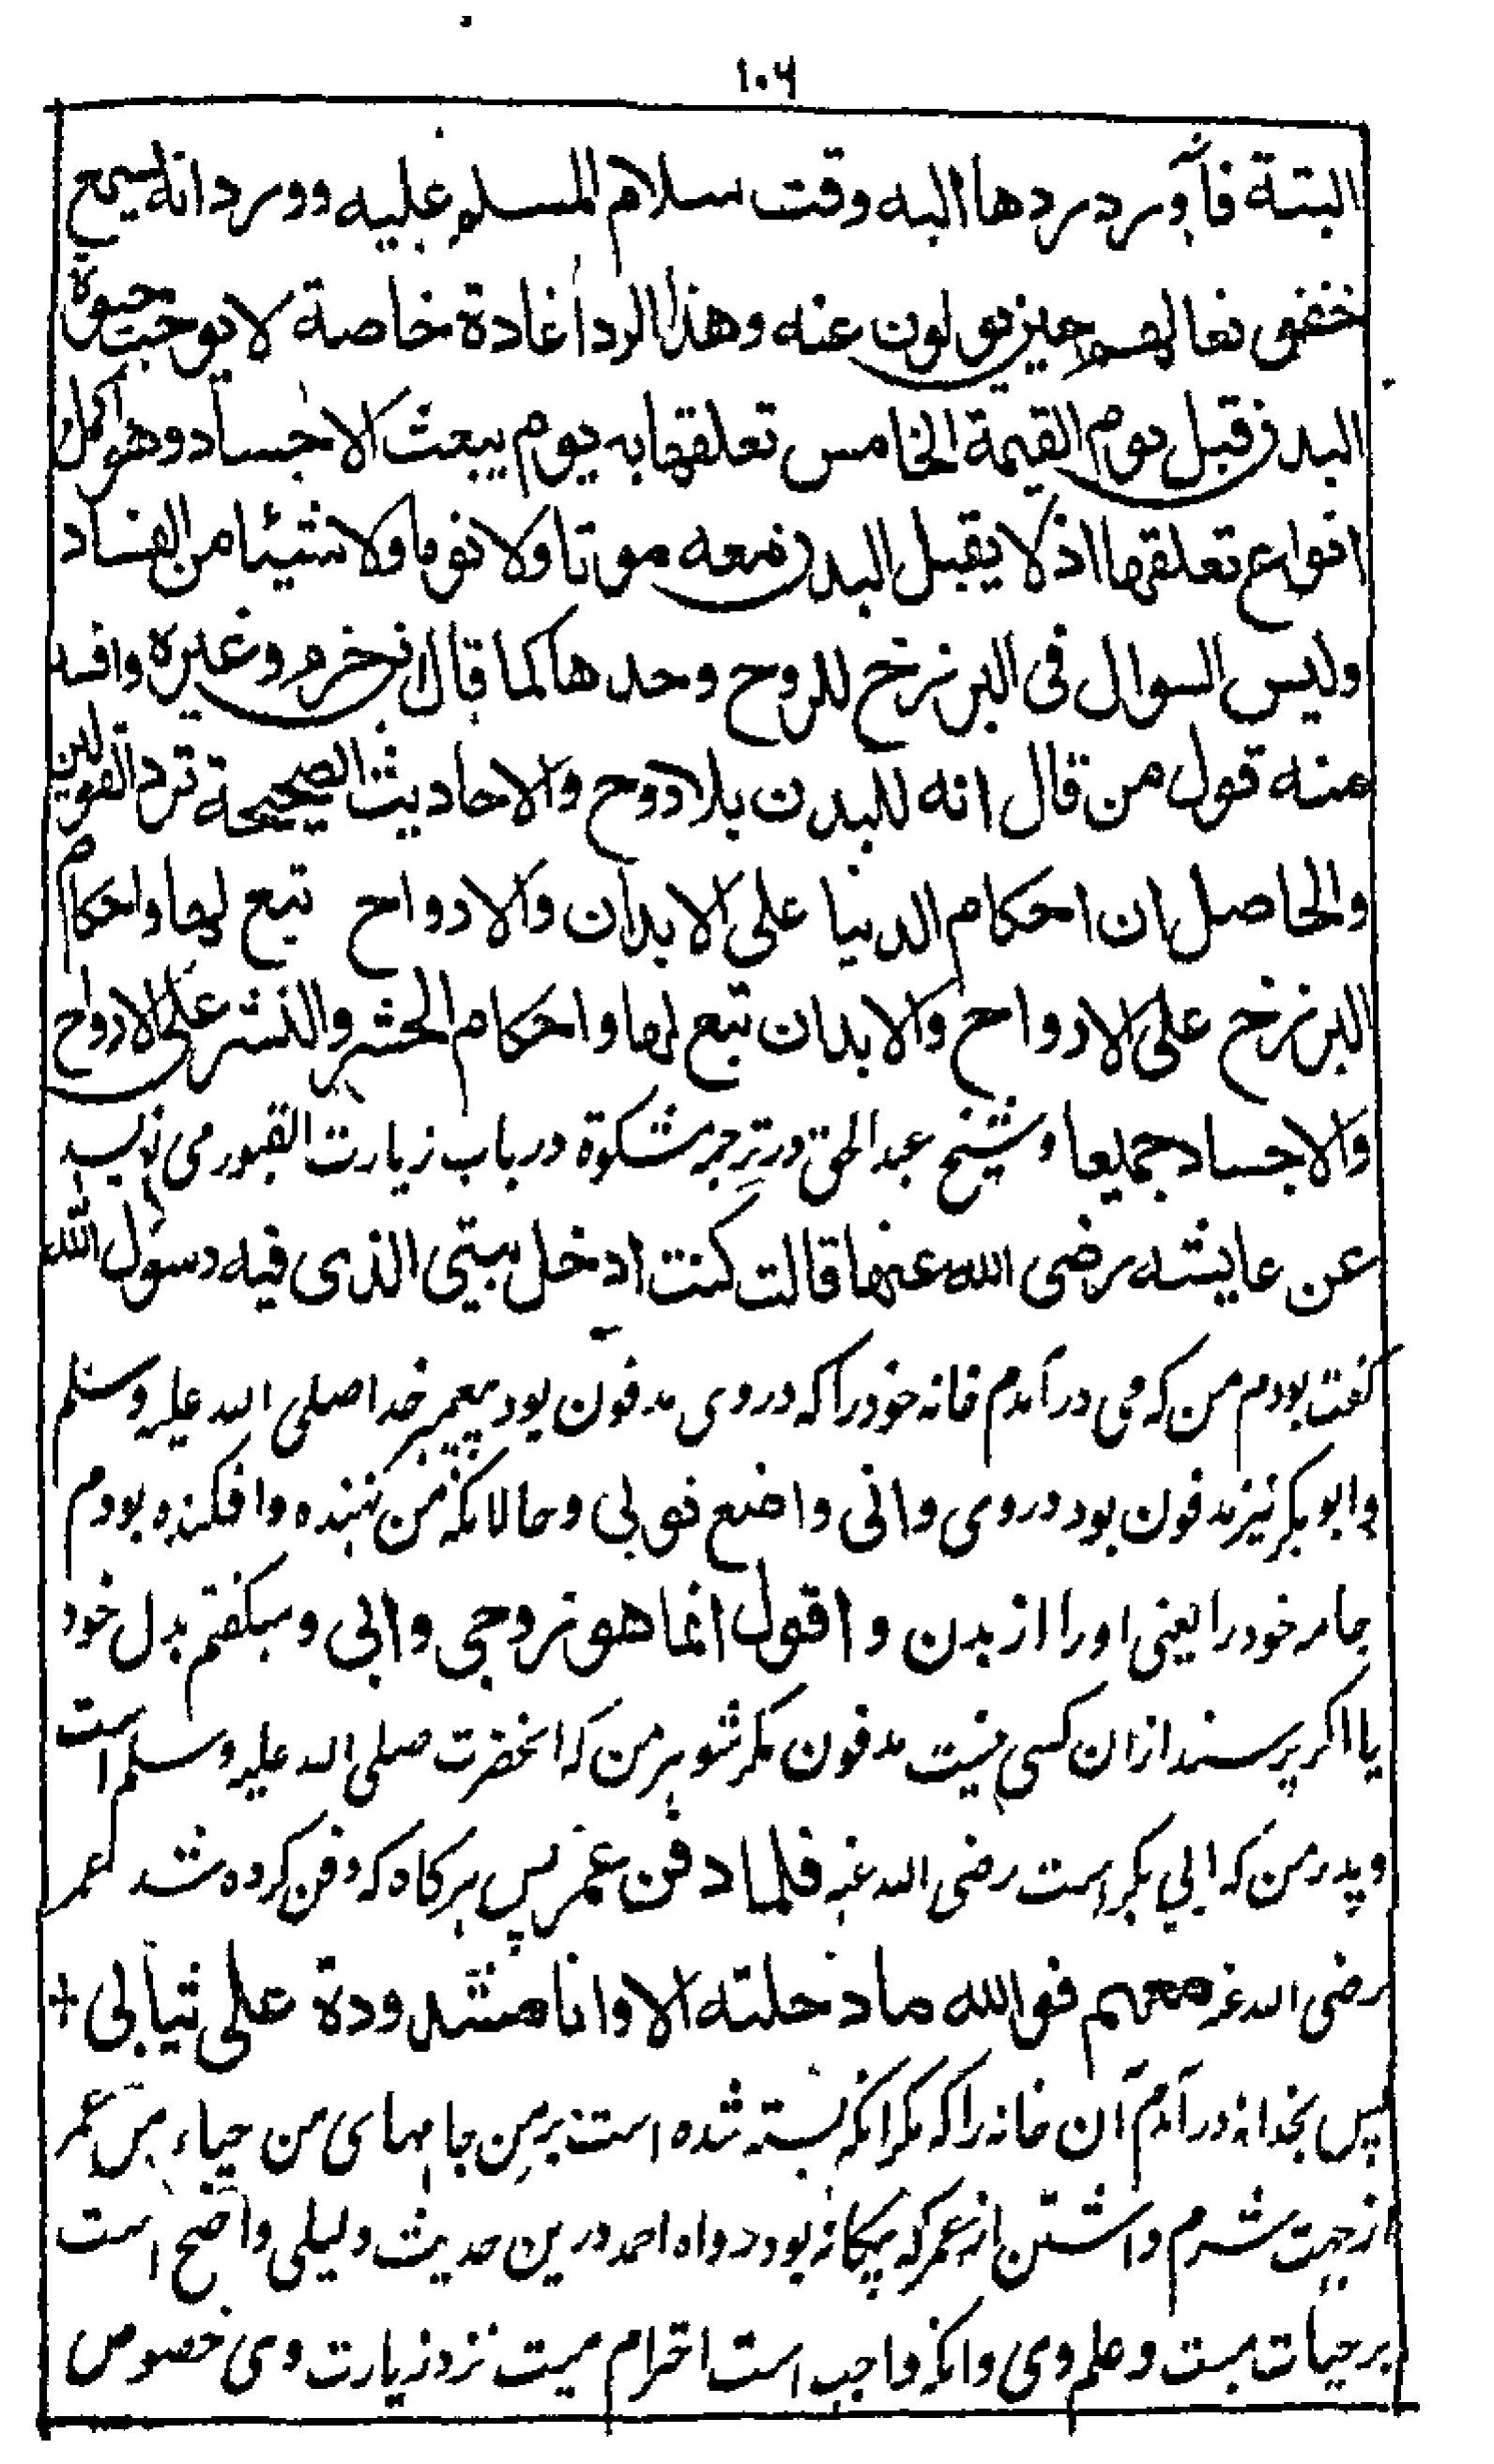 ۱۰۶
البتة فانه ورد ردها اليه وقت سلام المسلم عليه وورد انه يسمع
خفق نعالهم حين يولون عنه وهذا الرد اعادة خاصة لا يوجب حيوة
البدن قبل يوم القيمة الخامس تعلقها به يوم يبعث الاجساد وهو اكمل
انواع تعلقها اذ لا يقبل البدن معه موتا ولا نوما ولا شيئا من الفساد
وليس السوال فى البرزخ للروح وحدها كما قال ابن حزم وغيره وافسد
منه قول من قال انه للبدن بلا روح والاحاديث الصحيحة ترد القولين
والحاصل ان احكام الدنيا على الابدان والارواح تبع لها واحكام
البرزخ على الارواح والابدان تبع لها واحكام الحشر والنشر على الارواح
والاجساد جميعا و شيخ عبد الحق در ترجمه مشكوة در باب زيارت القبور مى نويسد
عن عايشه رضى الله عنها قالت كنت ادخل بيتى الذى فيه رسول الله
گفت بودم من كه مى درآمدم خانه خود را كه در وى مدفون بود پيغمبر خدا صلى الله عليه وسلم
وابو بكر نيز مدفون بود در وى وانى واضع ثوبى و حالانكه من نهنده وافكنده بودم
جامه خود را يعنى او را از بدن واقول انما هو زوجى وابى و ميگفتم بدل خود
يا اگر پرسند ازان كسى نيست مدفون مگر شوهر من كه انحضرت صلى الله عليه وسلم است
و پدر من كه ابى بكر است رضى الله عنه فلما دفن عمر پس هرگاه كه دفن كرده شد عمر
رضى الله عنه معهم فوالله ما دخلته الا وانا مشدودة على ثيابى +
پس بخدا نه درآمدم آن خانه را كه مگر انكه بسته شده است بر من جامهاى من حياء من عمر
از جهت شرم داشتن از عمر كه بيگانه بود رواه احمد درين حديث دليلى واضح است
بر حيات ميت و علم وى و انكه واجب است احترام ميت نزد زيارت وى خصوص